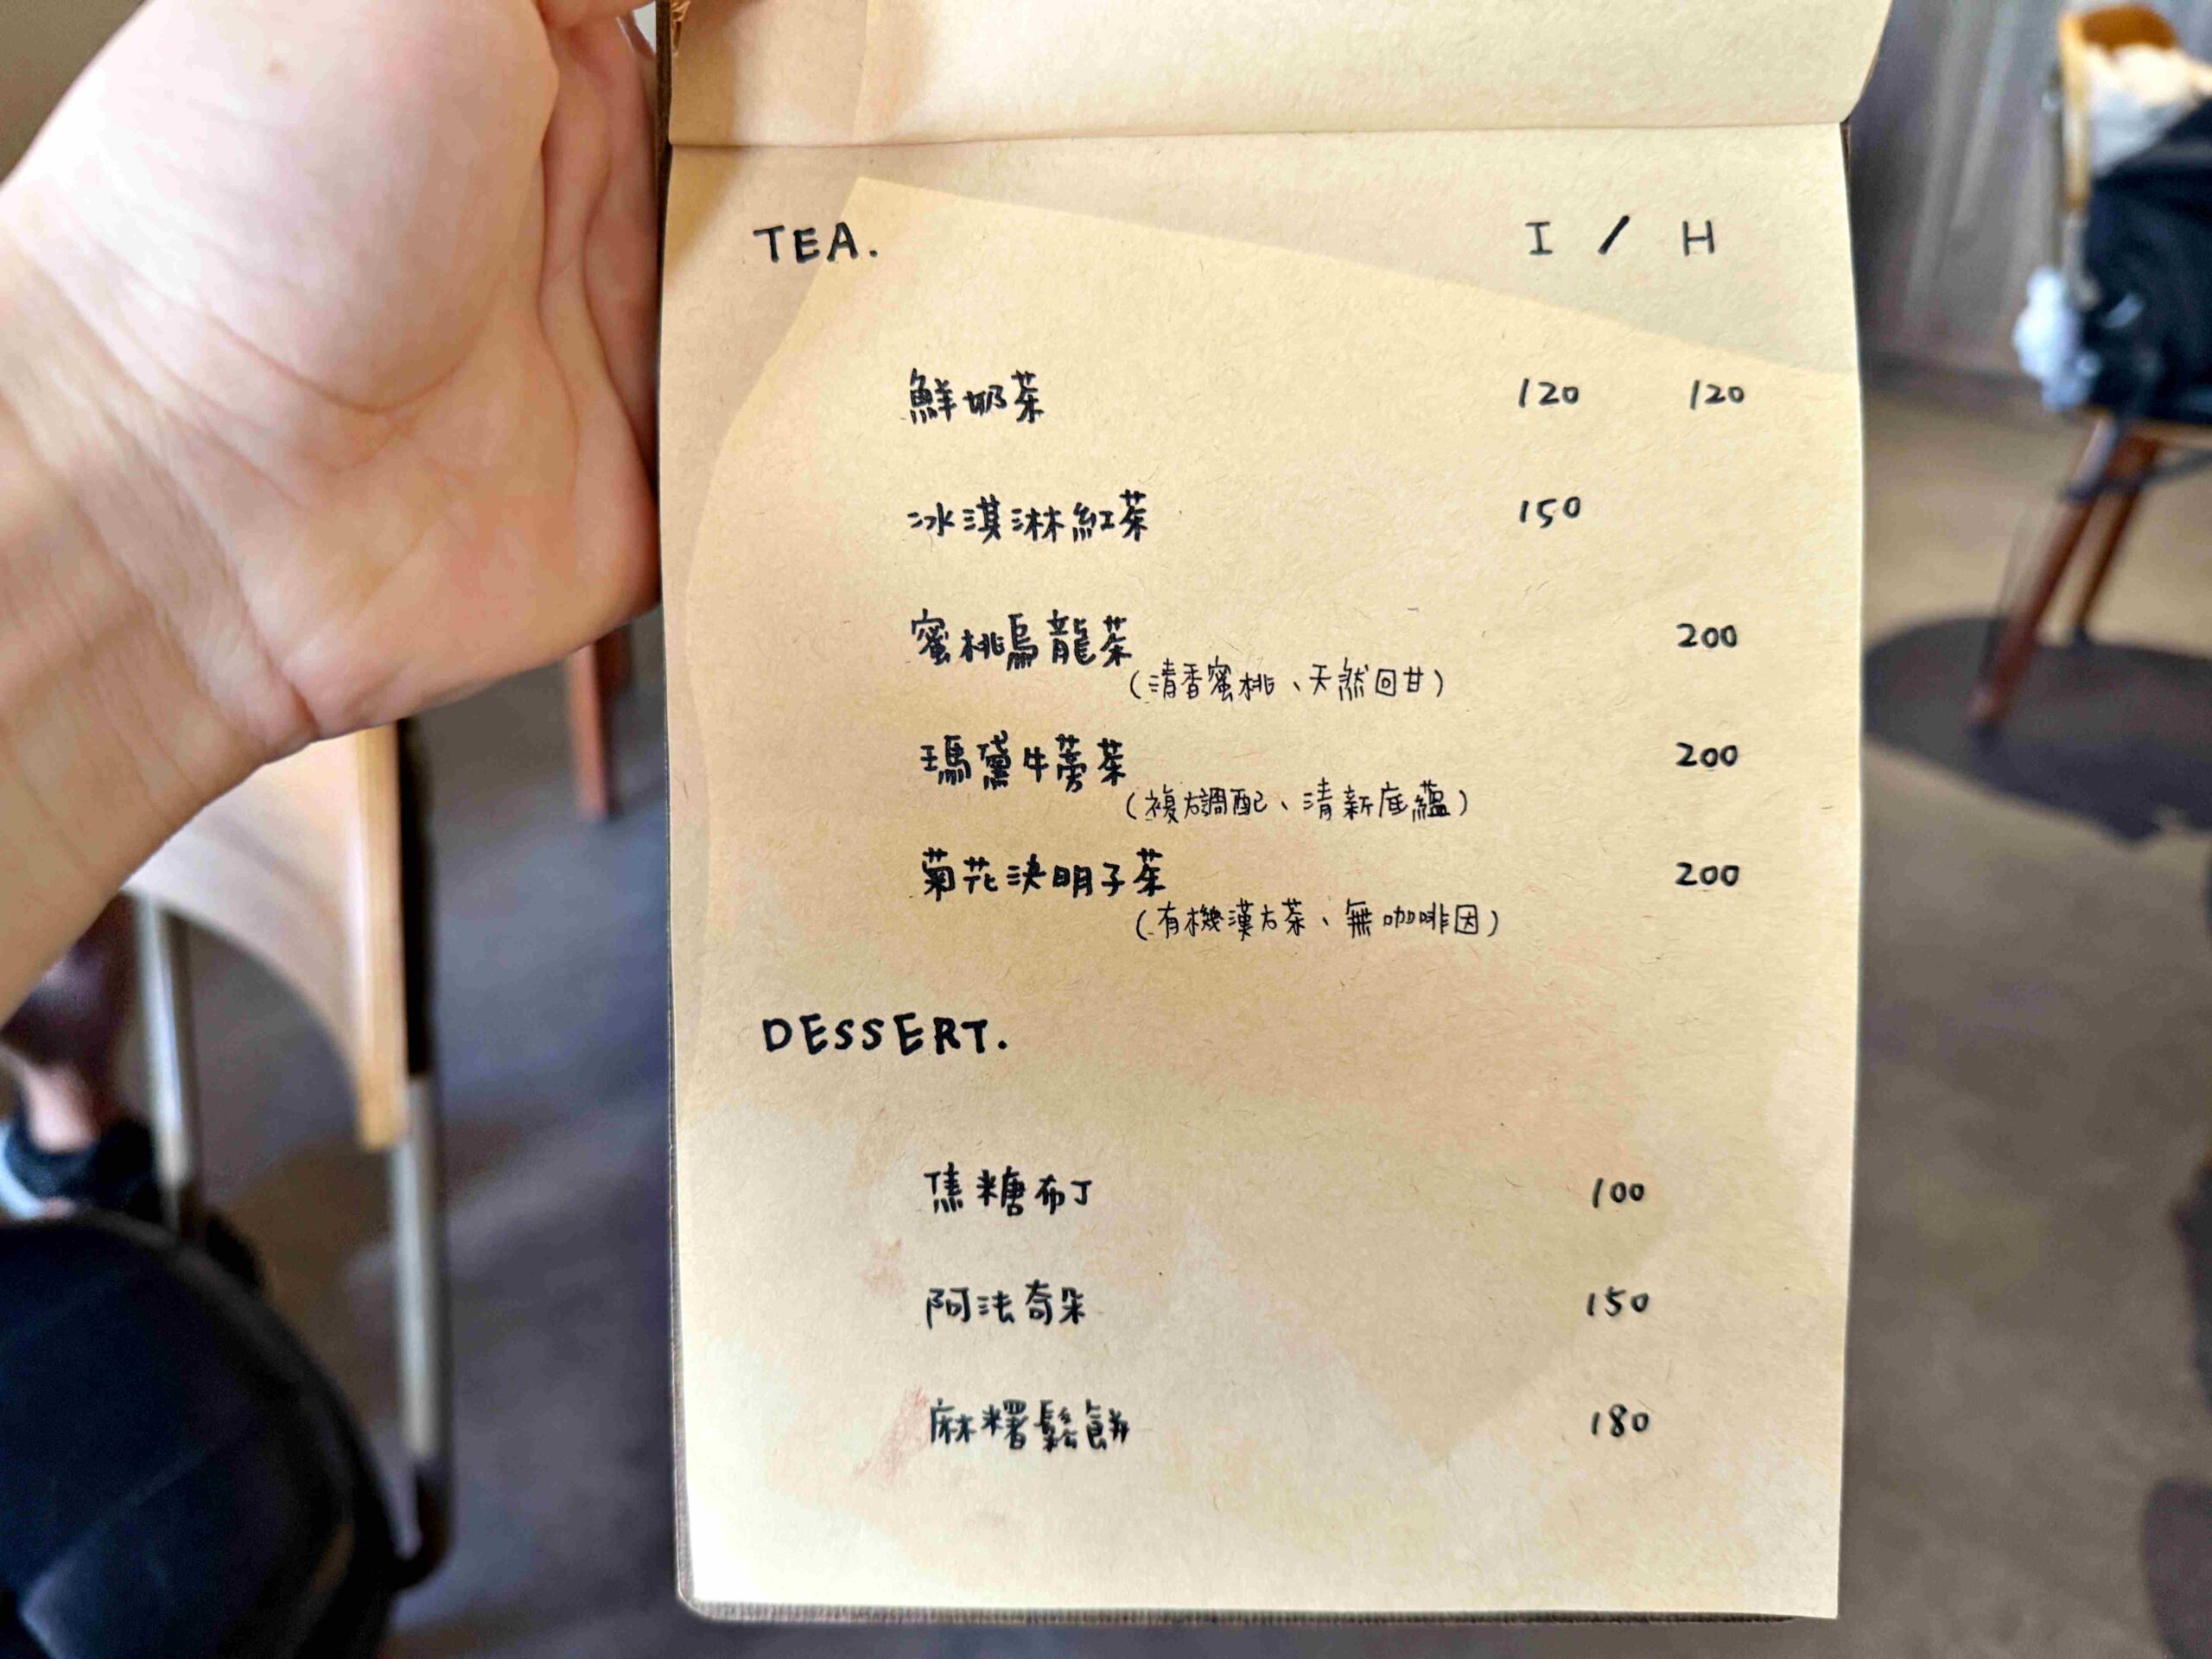 TEA. I / H
鮮奶茶 120 120
冰淇淋紅茶 150
蜜桃烏龍茶 200
(清香蜜桃、天然回甘)
瑪黛牛蒡茶 200
(複方調配、清新底蘊)
菊花決明子茶 200
(有機漢方茶、無咖啡因)
DESSERT.
焦糖布丁 100
阿法奇朵 150
麻糬鬆餅 180